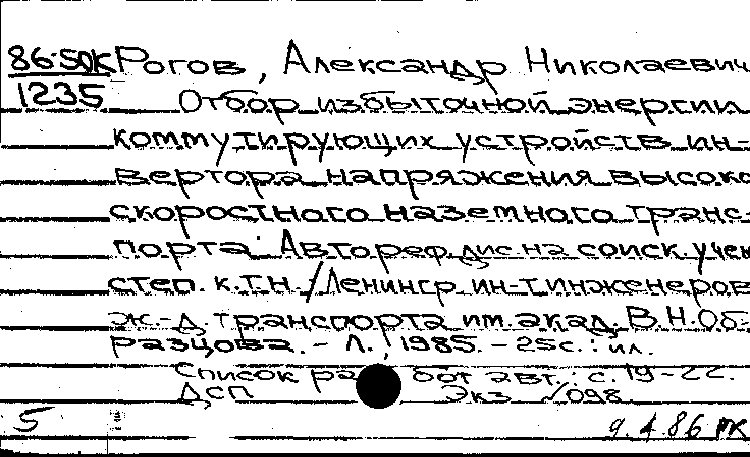 86-5ДК Рогов, Александр Николаевич
1235 Отбор избыточной энергии
коммутирующих устройств ин-
вертора напряжения высоко
скоростного наземного транс-
порта: Автореф. дис. на соиск. учен
степ. к.т.н. / Ленингр. ин-т инженеров
ж.-д. транспорта им. акад. В.Н. Об-
разцова. - Л., 1985. - 25с.: ил.
Список работ авт.: с. 19-22.
ДСП Экз. №098
5 9.4.86 РК